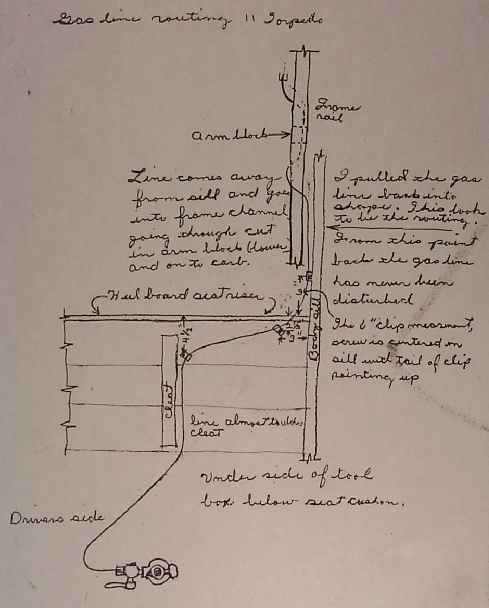 Gas line routing 11 Torpedo
Frame
rail
Arm block
Line comes away
from sill and goes
into frame channel
going through cut
in arm block (lower
and on to carb.
I pulled the gas
line back into
shape. This look
to be the routing.
From this point
back the gas line
has never been
disturbed
The 6" clip mearment,
screw is centered on
sill with tail of clip
pointing up
Heel board seat riser
4 1/2"
Body sill
Cleat
line almost touches
cleat
Under side of tool
box below seat cushon.
Drivers side